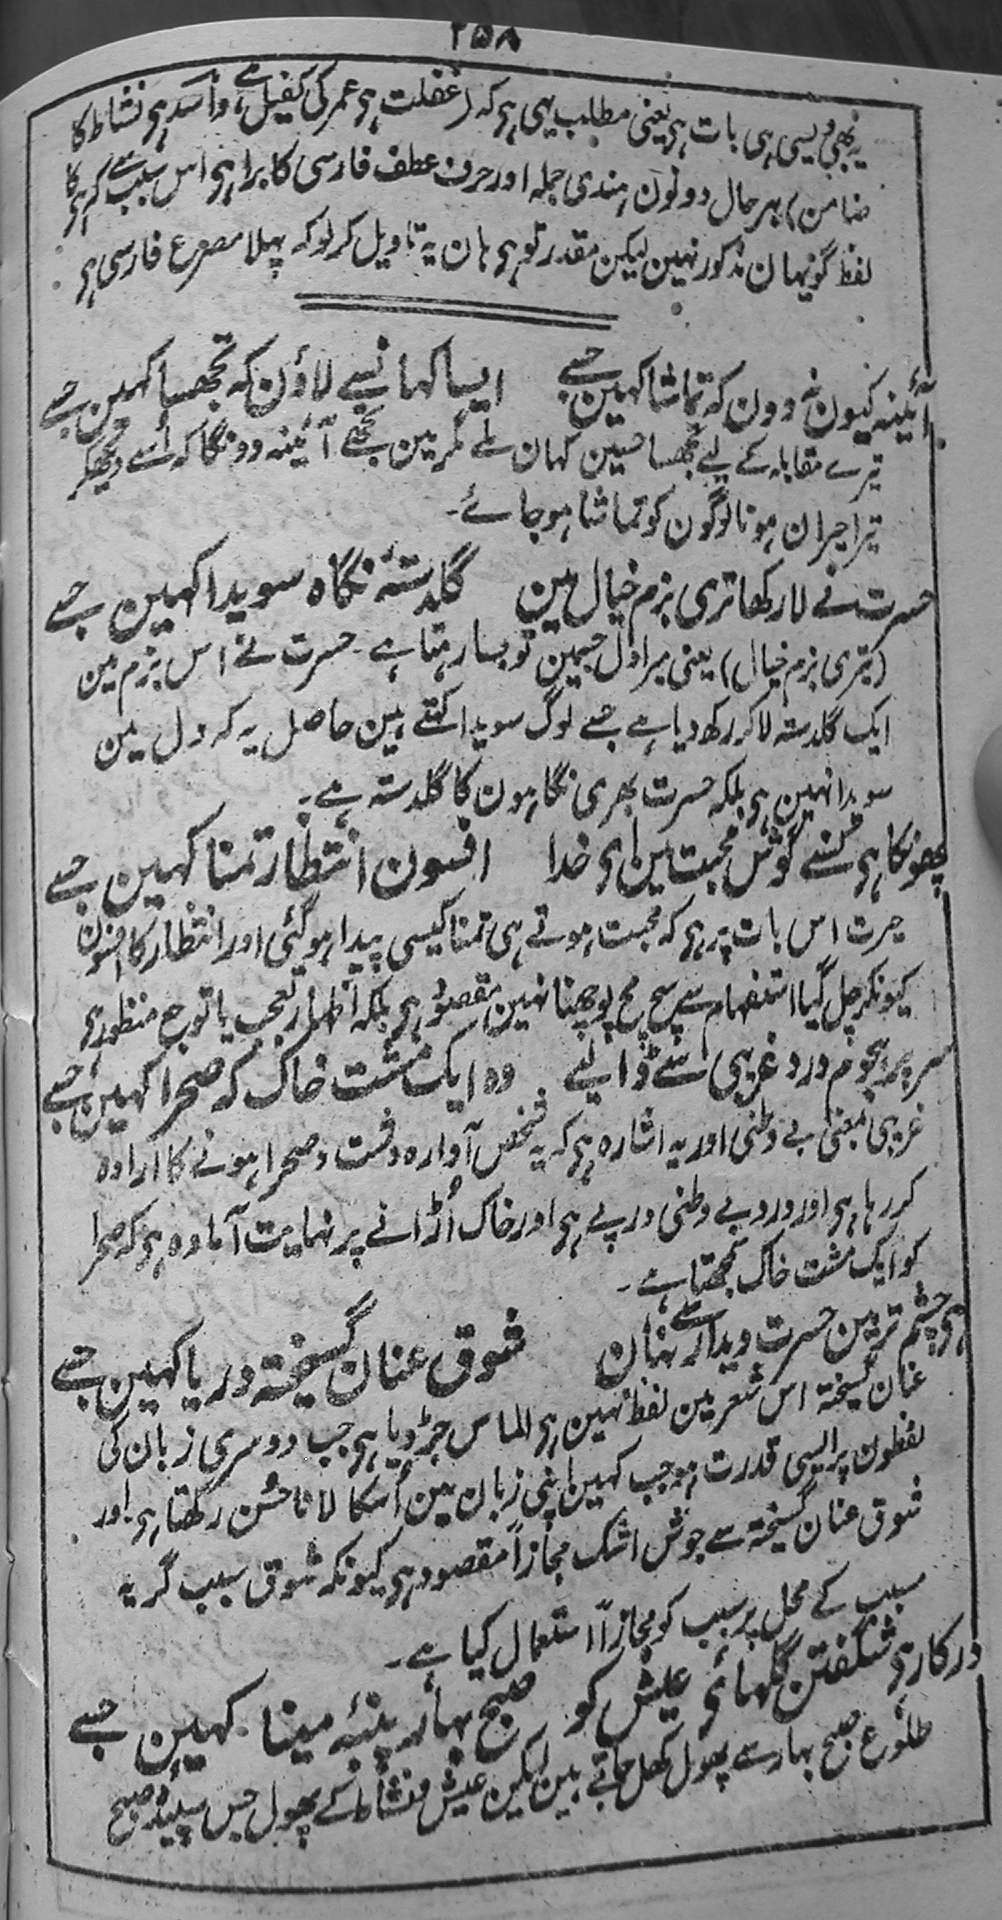 ۲۵۸
یہ بھی ویسی ہی بات ہی یعنی مطلب یہی ہی کہ (غفلت ہی عمر کی کفیل ہے، و اسد ہی نشاط کا
ضامن) بہر حال دونون ہندی جملہ اور حرف عطف فارسی کا برا ہی اس سبب سے کہ ہی کا
لفظ گو یہان مذکور نہین لیکن مقدر تو ہی ہان یہ تاویل کر لو کہ پہلا مصرع فارسی ہی
آئینہ کیون نہ دون کہ تماشا کہین جسے ایسا کہانسے لاؤن کہ تجھسا کہین جسے
تیرے مقابلہ کے لیے تجھسا حسین کہان ملے مگر مین تجھے آئینہ دونگا کہ اُسے دیکھکر
تیرا حیران ہونا لوگون کو تماشا ہو جائے۔
حسرت نے لا رکھا تری بزم خیال مین گلدستۂ نگاہ سویدا کہین جسے
(تیری بزم خیال) یعنی میرا دل جسمین تو بسا رہتا ہے۔ حسرت نے اس بزم مین
ایک گلدستہ لاکر رکھ دیا ہے جسے لوگ سویدا کہتے ہین حاصل یہ کہ دل مین
سویدا نہین ہی بلکہ حسرت بھری نگاہون کا گلدستہ ہے۔
پھونکا ہی کسنے گوش محبت مین ای خدا افسون انتظار تمنا کہین جسے
حیرت اس بات پر ہی کہ محبت ہوتے ہی تمنا کیسی پیدا ہو گئی اور انتظار کا افسون
کیونکر چل گیا استفہام سے سچ مچ پوچھنا نہین مقصود ہی بلکہ اظہار تعجب یا توجع منظور ہی
سر پر ہجوم درد غریبی سے ڈالیے وہ ایک مشت خاک کہ صحرا کہین جسے
غریبی بمعنی بے وطنی اور یہ اشارہ ہی کہ یہ شخص آوارہ دشت و صحرا ہونے کا ارادہ
کر رہا ہی اور درد بے وطنی درپے ہی اور خاک اُڑانے پر نہایت آمادہ ہی کہ صحرا
کو ایک مشت خاک سمجھتا ہے۔
ہی چشم تر مین حسرت دیدار سے نہان شوق عنان گسیختہ دریا کہین جسے
عنان گسیختہ اس شعر مین لفظ نہین ہی الماس جڑ دیا ہی جب دوسری زبان کی
لفظون پر ایسی قدرت ہو جب کہین اپنی زبان مین اُسکا لانا حسن رکھتا ہی اور
شوق عنان گسیختہ سے جوش اشک مجازاً مقصود ہی کیونکہ شوق سبب گریہ
سبب کے محل پر سبب کو مجازاً استعمال کیا ہے۔
درکار ہی شگفتن گلہائے عیش کو صبح بہار پنبۂ مینا کہین جسے
طلوع صبح بہار سے پھول کھل جاتے ہین لیکن عیش و نشاط کے پھول جس سپیدۂ صبح